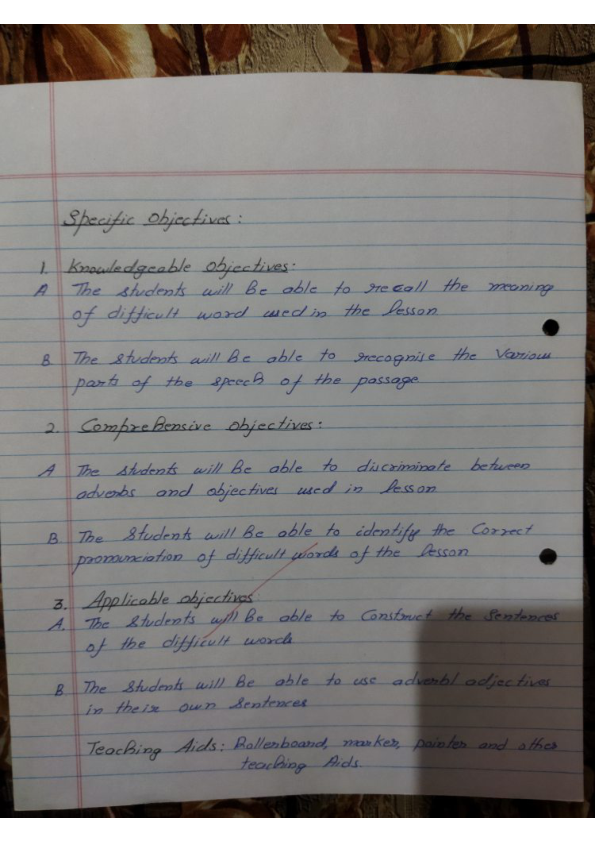 Specific Objectives:
1. Knowledgeable Objectives:
A The students will Be able to recall the meaning
of difficult word used in the lesson
B The students will Be able to recognise the various
parts of the speech of the passage
2. Comprehensive Objectives:
A The students will Be able to discriminate between
adverbs and objectives used in lesson
B. The Students will Be able to identify the Correct
pronunciation of difficult words of the lesson
3. Applicable objectives:
A. The Students will Be able to Construct the Sentences
of the difficult words
B The Students will Be able to use adverb/ adjectives
in their own Sentences
Teaching Aids: Rollerboard, marker, pointer and other
teaching Aids.